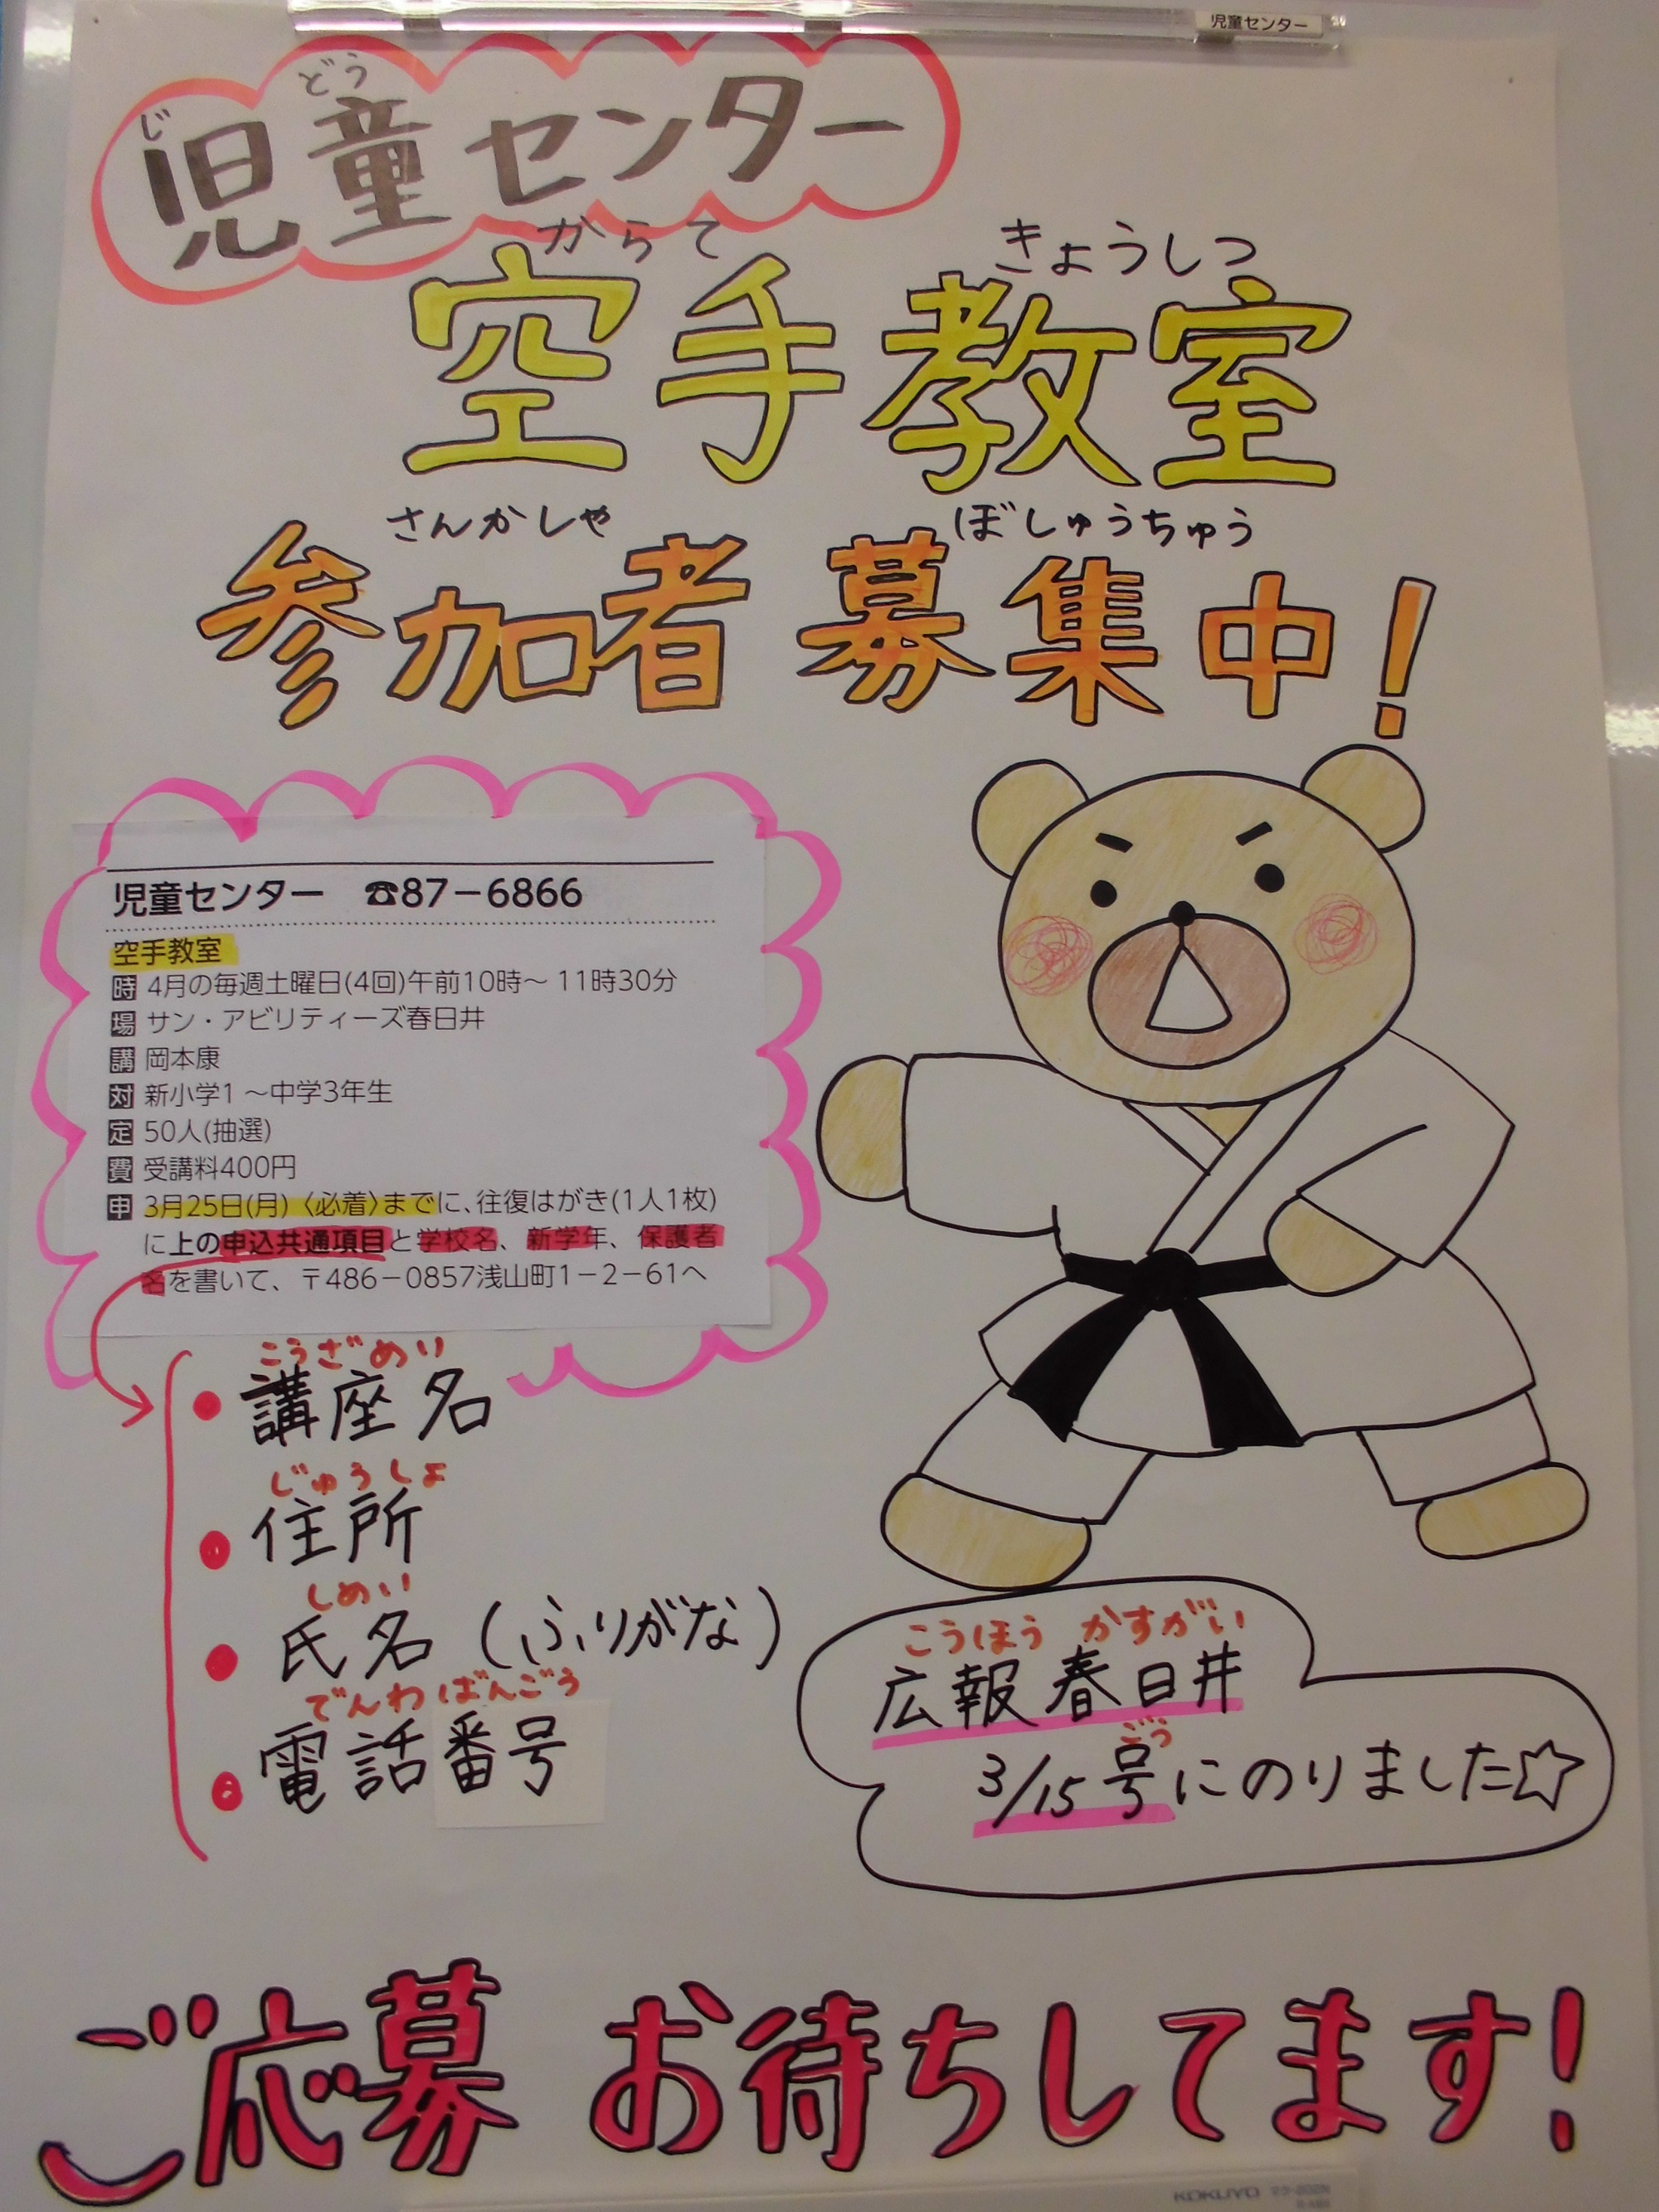 児童センター
じ どう
児童センター
からて きょうしつ
空手教室
さんかしゃ ぼしゅうちゅう
参加者 募集中!
児童センター ☎87-6866
空手教室
時 4月の毎週土曜日(4回)午前10時～11時30分
場 サン・アビリティーズ春日井
講 岡本康
対 新小学1～中学3年生
定 50人(抽選)
費 受講料400円
申 3月25日(月)〈必着〉までに、往復はがき(1人1枚)
に上の申込共通項目と学校名、新学年、保護者
名を書いて、〒486-0857浅山町1-2-61へ
こうざめい
・講座名
じゅうしょ
・住所
しめい
・氏名(ふりがな)
でんわばんごう
・電話番号
こうほう かすがい
広報春日井
ごう
3/15号にのりました☆
ご応募 お待ちしてます!
KOKUYO